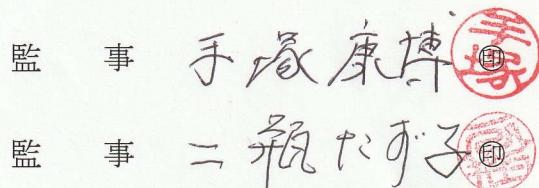 監事 手塚康博 ㊞
監事 二瓶たず子 ㊞